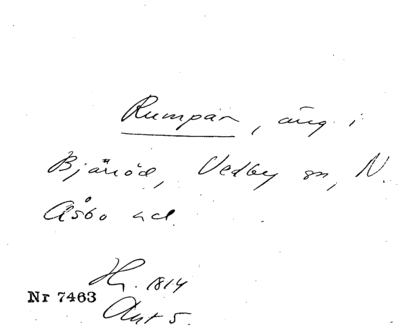 Rumpan, äng i
Bjäröd, Vedby sn, N.
Åsbo hd.
Hy. 1814
Nr 7463
Akt 5.